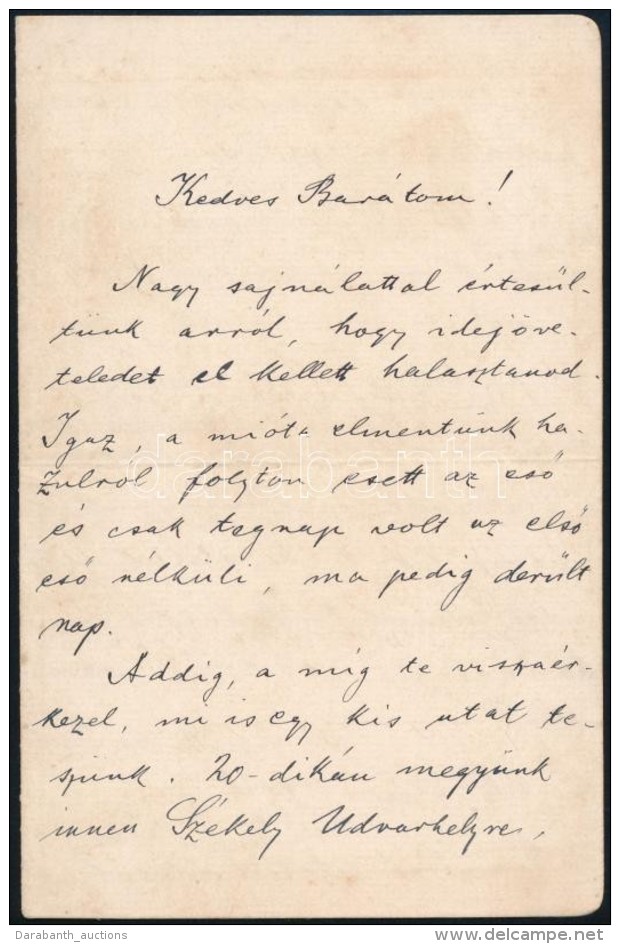 Kedves Barátom!
Nagy sajnálattal értesül-
tünk arról, hogy idejöve-
teledet el kellett halasztanod.
Igaz, a mióta elmentünk ha-
zulról folyton esett az eső
és csak tegnap volt az első
eső nélküli, ma pedig derült
nap.
Addig, a míg te visszaér-
kezel, mi is egy kis utat te-
szünk. 20-dikán megyünk
innen Székely Udvarhelyre,
darabanth
Darabanth_auctions
www.delcampe.net